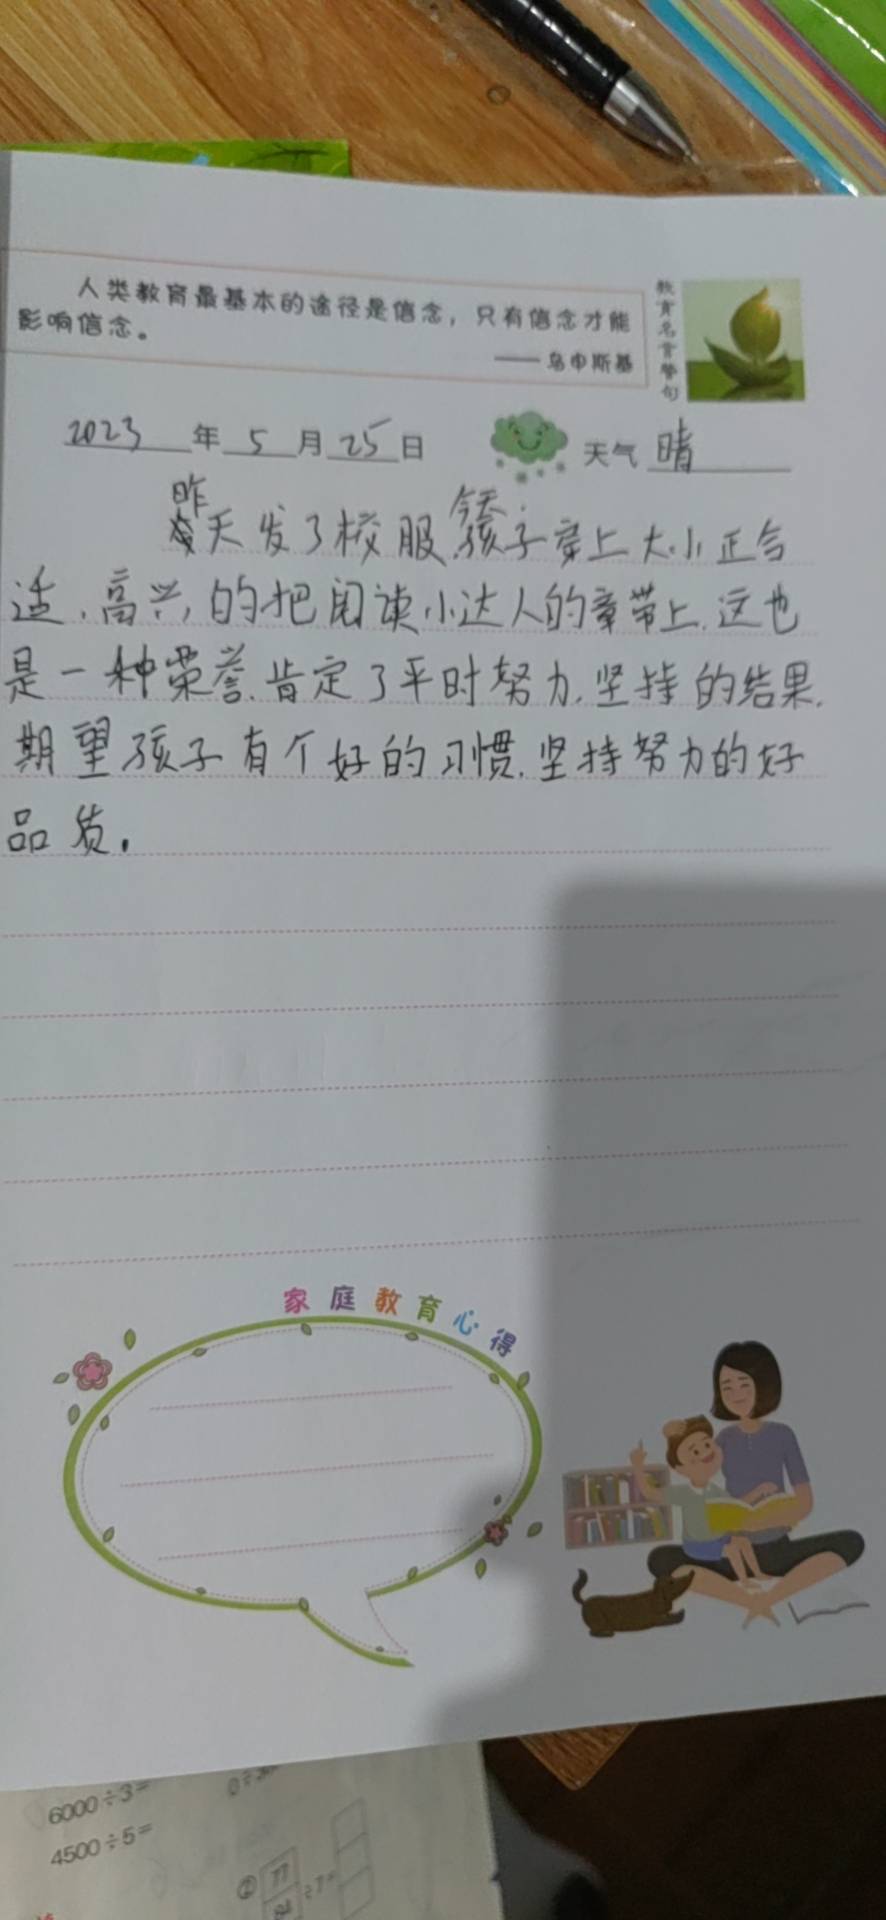 人类教育最基本的途径是信念，只有信念才能
影响信念。
——乌申斯基
教育名言警句
2023年5月25日
天气 晴
昨天发了校服,今天孩子穿上大小正合
适,高兴的把阅读小达人的章带上,这也
是一种荣誉,肯定了平时努力,坚持的结果,
期望孩子有个好的习惯,坚持努力的好
品质.
家庭教育心得
6000÷3=
4500÷5=
②
77
84
÷7=